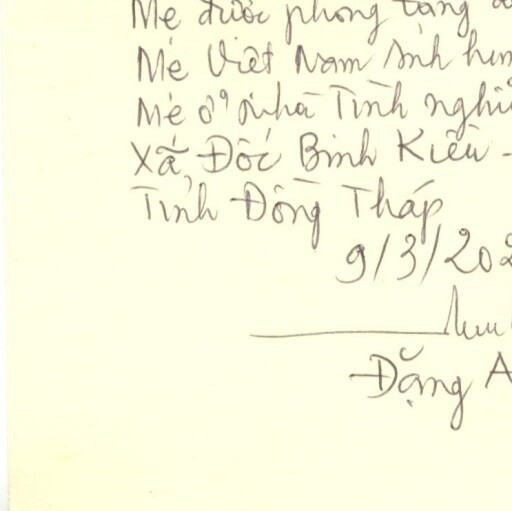 Mẹ được phong tặng
Mẹ Việt Nam Anh
Mẹ ở nhà Tình
Xã Đốc Binh Kiều -
Tỉnh Đồng Tháp
9/3/202
Đặng A